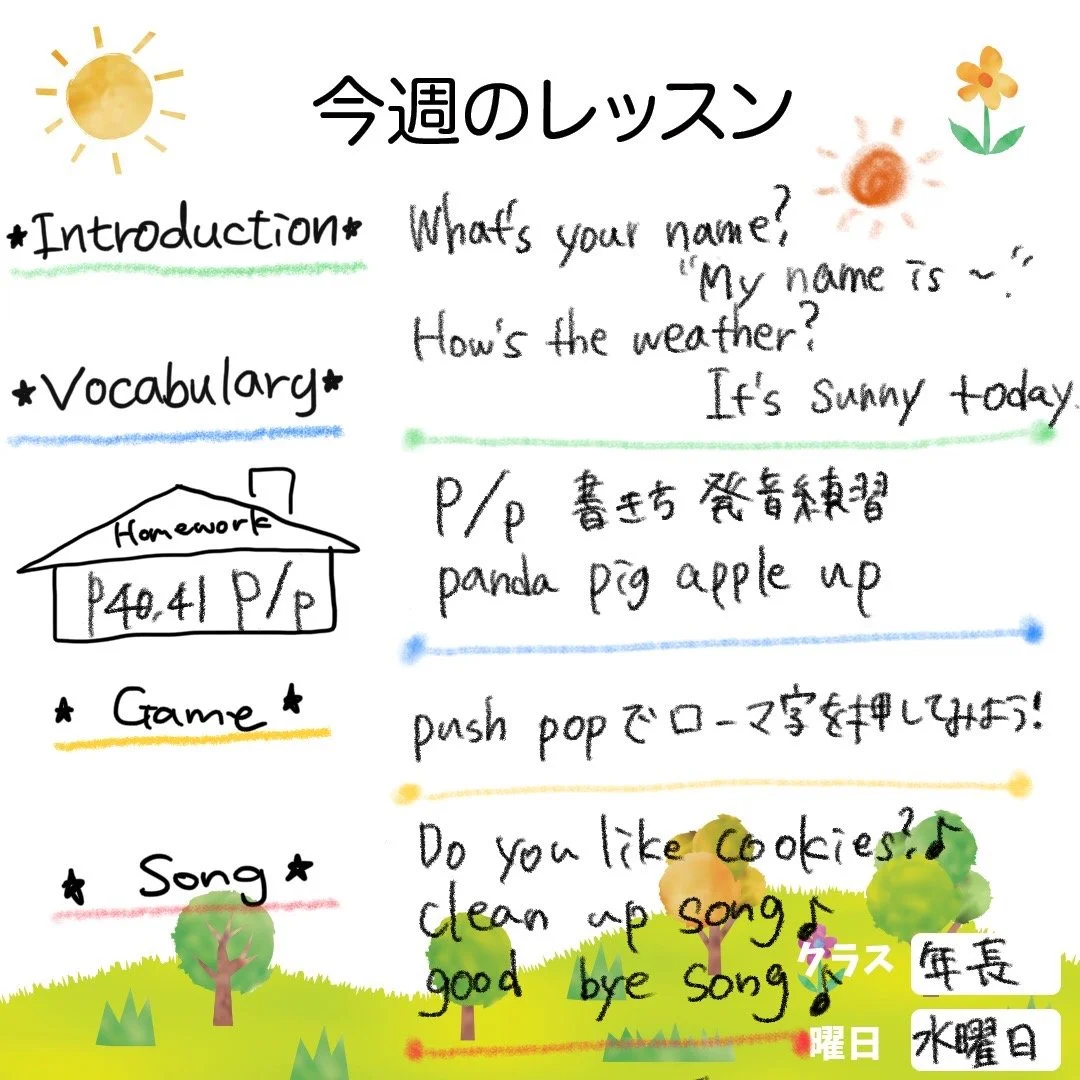 今週のレッスン
★Introduction★
What's your name?
"My name is ~."
How's the weather?
It's sunny today.
★Vocabulary★
P/p 書きち 発音練習
panda pig apple up
Homework
P40,41 P/p
★ Game ★
push popでローマ字を押してみよう!
★ Song ★
Do you like cookies?♪
clean up song♪
good bye song♪
クラス 年長
曜日 水曜日